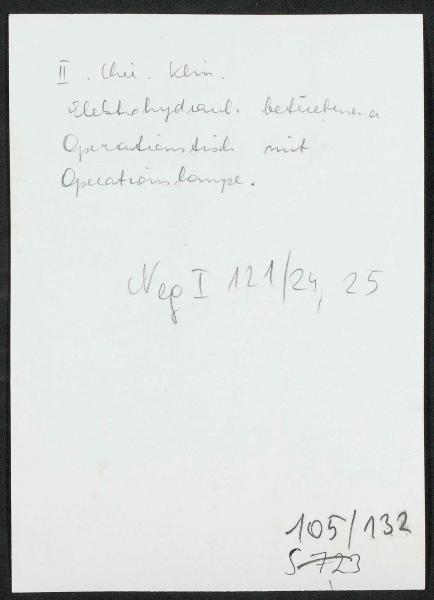 II. Chir. Klin.
Elektrohydraul. betriebener
Operationstisch mit
Operationslampe.
Neg I 121/24, 25
105/132
S 723